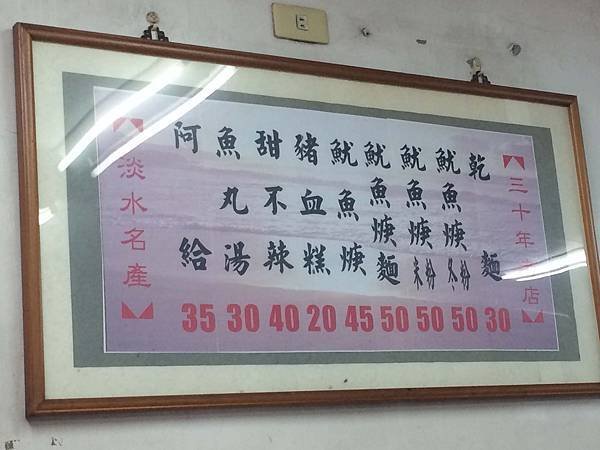 三十年老店
乾麵
30
魷魚焿冬粉
50
魷魚焿米粉
50
魷魚焿麵
50
魷魚焿
45
豬血糕
20
甜不辣
40
魚丸湯
30
阿給
35
淡水名產